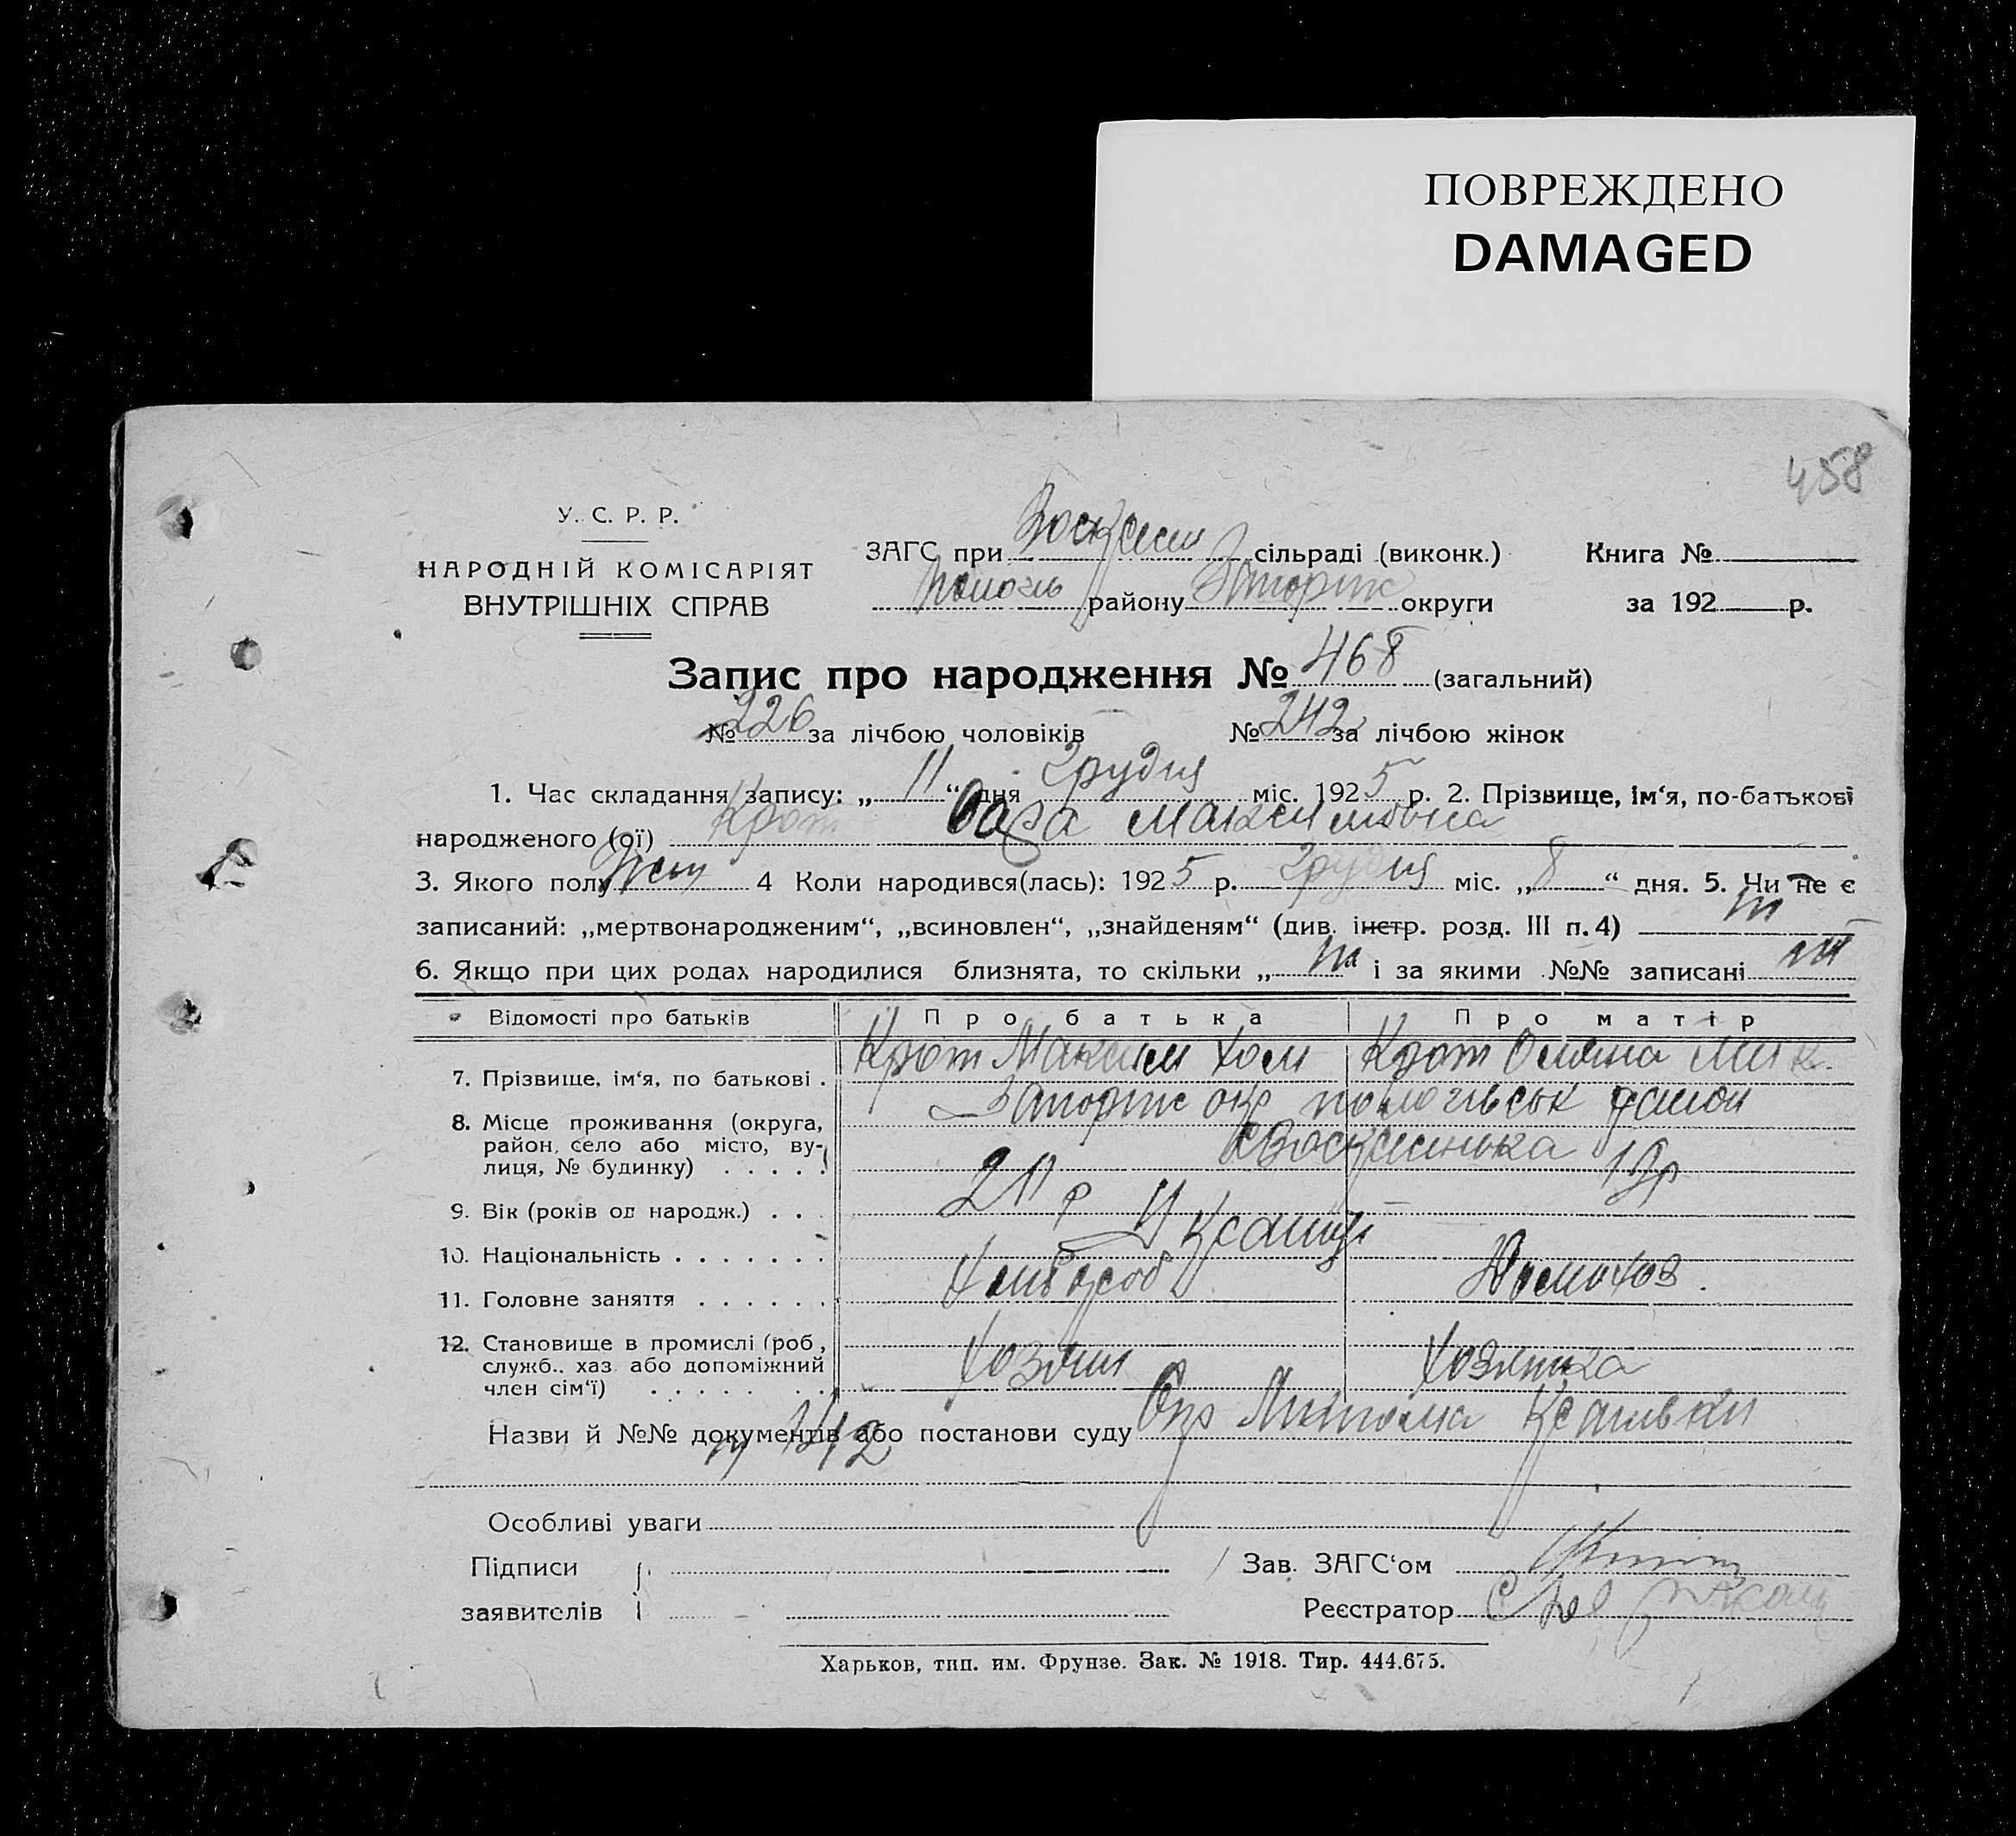 ПОВРЕЖДЕНО
DAMAGED
458
У. С. Р. Р.
НАРОДНІЙ КОМІСАРІЯТ
ВНУТРІШНІХ СПРАВ
ЗАГС при Воскресен сільраді (виконк.)
Пологів району Запоріж округи
Книга №
за 192 р.
Запис про народження № 468 (загальний)
№ 226 за лічбою чоловіків № 242 за лічбою жінок
1. Час складання запису: „ 11 “ дня Грудня міс. 1925 р. 2. Прізвище, ім‘я, по-батькові
народженого (ої) Крот Максимовна
3. Якого полу жен 4 Коли народився(лась): 1925 р. Грудня міс. „ 8 “ дня. 5. Чи не є
записаний: „мертвонародженим“, „всиновлен“, „знайденям“ (див. інстр. розд. III п. 4)
6. Якщо при цих родах народилися близнята, то скільки „ і за якими №№ записані
Відомості про батьків Про батька Про матір
7. Прізвище, ім‘я, по батькові . Крот Максим Хом Крот Оляна Мик.
8. Місце проживання (округа, район, село або місто, вулиця, № будинку) . . . . . Запоріж окр пологівськ район
с Воскресенька
9. Вік (років од народж.) . . . 21 р 19р
10. Національність . . . . . . . Україці
11. Головне заняття . . . . . . Хлібороб Домохоз.
12. Становище в промислі (роб., служб., хаз. або допоміжний член сім‘ї) . . . . . . . Хозяин Хозяйка
Назви й №№ документів або постанови суду
Особливі уваги
Підписи
заявителів
Зав. ЗАГС‘ом
Реєстратор
Харьков, тип. им. Фрунзе. Зак. № 1918. Тир. 444.675.